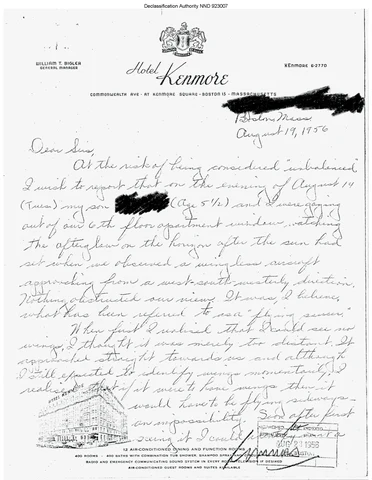 Declassification Authority NND 923007
WILLIAM T. BIGLER
GENERAL MANAGER
Hotel Kenmore
KENMORE 6-2770
COMMONWEALTH AVE · AT KENMORE SQUARE · BOSTON 15 · MASSACHUSETTS
Boston, Mass.
August 19, 1956
Dear Sirs,
At the risk of being considered "unbalanced"
I wish to report that on the evening of August 14
(Tues) my son (Age 5 1/2) and I were gazing
out of our 6th floor apartment window watching
the afterglow on the horizon after the sun had
set when we observed a wingless aircraft
approaching from a west-south-westerly direction.
Nothing obstructed our view. It was, I believe,
what has been referred to as a "flying saucer."
When first I noticed that I could see no
wings, I thought it was merely too distant. It
approached straight towards us and although
I still expected to identify wings momentarily, I
realized that if it were to have wings then it
would have to be flying sideways
an impossibility. Soon after first
seeing it I could
HOTEL KENMORE
AUG 21 1956
12 AIR-CONDITIONED DINING AND FUNCTION ROOMS
400 ROOMS · 400 BATHS WITH COMBINATION TUB SHOWER
RADIO AND EMERGENCY COMMUNICATING SOUND SYSTEM IN EVERY ROOM
AIR-CONDITIONED GUEST ROOMS AND SUITES AVAILABLE